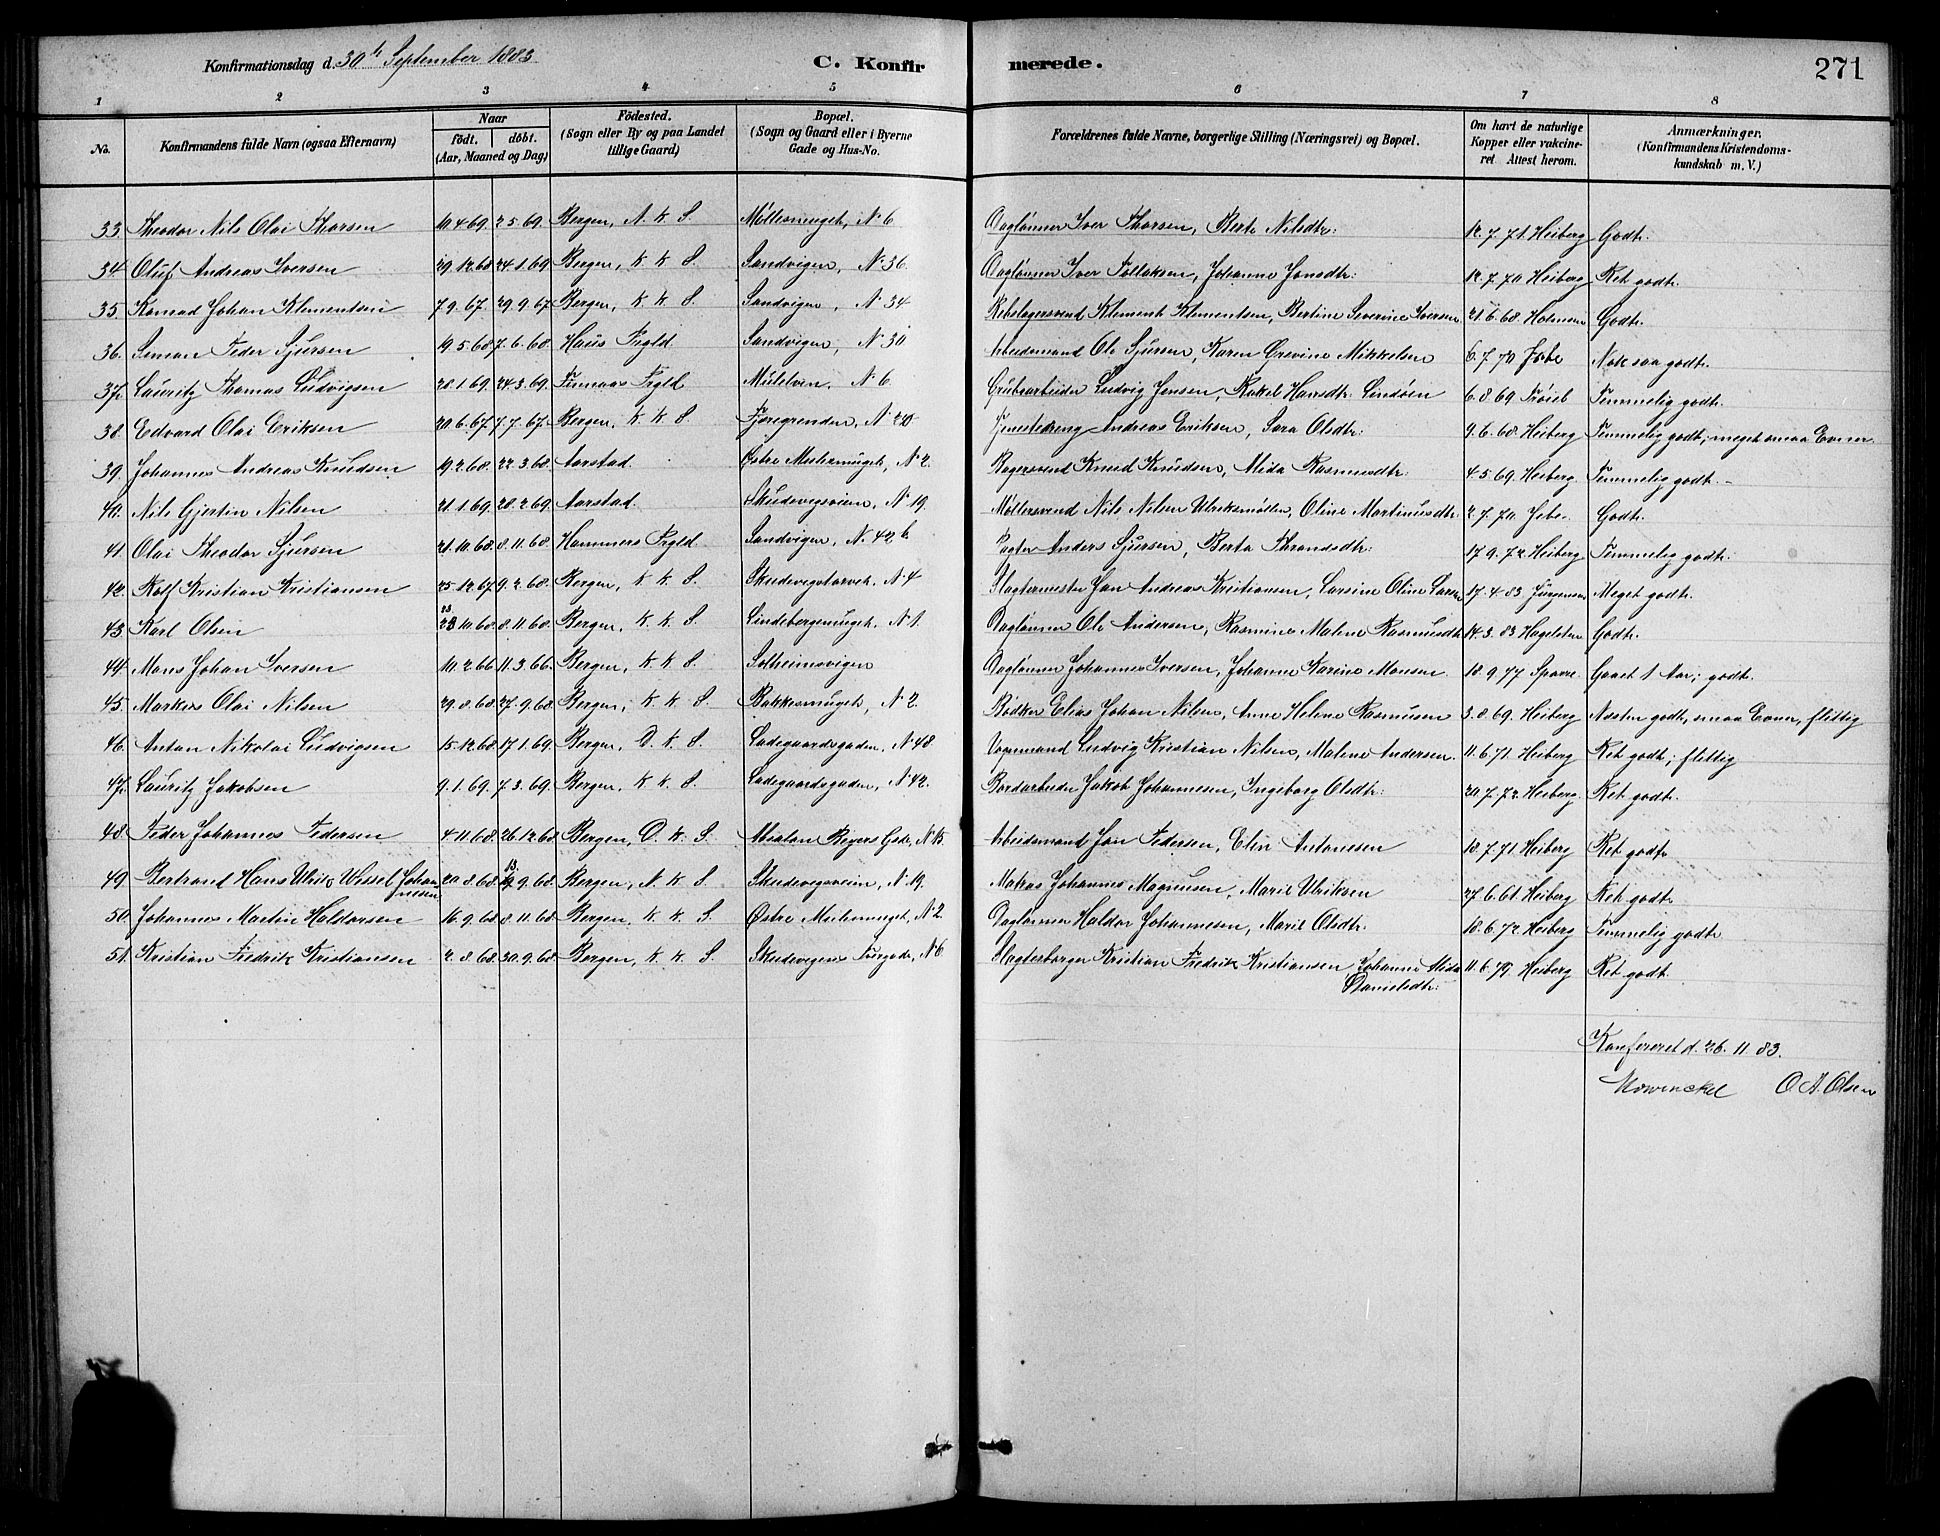 Konfirmationsdag d. 30te September 1883
C. Konfir merede. 271
1 2 3 4 5 6 7 8
No. Konfirmandens fulde Navn (ogsaa Efternavn) Naar födt. döbt. (Aar, Maaned og Dag) Födested. (Sogn eller By og paa Landet tillige Gaard) Bopæl. (Sogn og Gaard eller i Byerne Gade og Hus-No. Forældrenes fulde Navne, borgerlige Stilling (Næringsvei) og Bopæl. Om havt de naturlige Kopper eller vakcineret Attest herom. Anmærkninger. (Konfirmandens Kristendomskundskab m. V.)
33. Theodor Nils Olai Thorsen 10.4.69 2.5.69. Bergen, N. K. S. Møllesmuget, N. 6 Daglønner Iver Thorsen, Berte Nilsdtr: 12.7.71. Heiberg Godt.
34. Oluf Andreas Iversen 29.12.68 24.1.69 Bergen, K. K. S. Sandvigen, N. 36. Daglønner Iver Tollaksen, Johanne Jonsdtr: 12.7.70 Heiberg Ret godt.
35. Konrad Johan Klementsen 7.9.67. 29.9.67 Bergen, K. K. S. Sandvigen, N. 34 Rebslagersvend Klement Klementsen, Bertine Severine Iversen 21.6.68 Godt.
36. Simon Peder Sjursen 19.5.68 7.6.68. Haus Prgld Sandvigen, N. 30 Arbeidsmand Ole Sjursen, Karen Mikkelsen 6.7.70 Nok saa godt.
37. Lauritz Thomas Ludvigsen 28.1.69. 24.3.69. Finnaas Prgld Mulelven. N. 6 Grubearbeider Ludvig Jensen, Rakel Hansdtr. Lindøen 6.8.69 Temmelig godt.
38. Edvard Olai Eriksen 20.6.67 7.7.67. Bergen, K. K. S. N. 20 Tjenestedreng Andreas Eriksen, Sara Olsdtr: 9.6.68 Heiberg Temmelig godt; meget smaa Evner.
39. Johannes Andreas Knudsen 19.2.68. 22.3.68 Aarstad. Østre Murhesmuget, N. 2. Bagersvend Knud Knudsen, Rasmusdtr: 4.5.69 Heiberg. Temmelig godt. -
40. Nils Gjertin Nilsen 21.1.69. 28.2.69. Aarstad. Skudevigsveien, N. 19. Møllersvend Nils Nilsen Ulriksmøllen, Oline Martinusdtr 2.7.70 Godt.
41. Olai Theodor Sjursen 21.10.68 8.11.68. Hammers Prgld. Sandvigen, N. 42 b Anders Sjursen, Berta Throndsdtr: 17.9.72 Heiberg Temmelig godt.
42. Rolf Kristian Kristiansen 25.12.67 9.2.68. Bergen, K. K. S. Skudevigstorvet, N. 4 Slagtermester Jan Andreas Kristiansen, Larsine Oline Larsen 17.4.83 Jürgensen Meget godt.
43. Karl Olsen 10.68. 8.11.68. Bergen, K. K. S. Lindebergsmuget, N. 1. Daglønner Ole Andersen, Rasmine Malene Rasmusdtr 14.3.83 Godt.
44. Mons Johan Iversen 10.2.66 11.3.66. Bergen, K. K. S. Solheimsvigen Daglønner Johannes Iversen, Johanne Karine Monsen. 18.9.77 Sparre. Gaaet 1 Aar; godt.
45. Markus Olai Nilsen 29.8.68 27.9.68 Bergen, K. K. S. Bakkesmuget, N. 2 Bødker Elias Johan Nilsen, Anne Helene Rasmusen 3.8.69. Heiberg Næsten godt, smaa Evner, flittig
46. Anton Nikolai Ludvigsen 15.12.68 17.1.69. Bergen, D. K. S. Ladegaardsgaden, N. 48. Vognmand Ludvig Kristian Nilsen, Malene Andersen. 11.6.71. Heiberg Ret godt; flittig
47. Lauritz Jakobsen 9.1.69. 7.3.69. Bergen, K. K. S. Ladegaardsgaden, N. 42. Bordarbeider Jakob Johannesen, Ingeborg Olsdtr: 20.7.72 Heiberg. Ret godt.
48. Peder Johannes Pedersen 4.11.68. 26.12.68 Bergen, D. K. S. Absalon Beyers Gade, Arbeidsmand Jon Pedersen, Elin Antonesen 18.7.71 Heiberg Ret godt
49. Bertrand Hans Ulrik Wessel Johannesen 20.8.68 9.68. Bergen, N. K. S. Skudevigsveien, N. 19. Johannes Magnusen, Marie Ulriksen 27.6.68 Heiberg Ret godt
50. Johannes Martin Haldorsen 16.9.68 8.11.68 Bergen, K. K. S. Østre Murhesmuget, N. 2 Daglønner Haldor Johannesen, Marie Olsdtr: 18.6.72 Heiberg Temmelig godt
51. Kristian Fredrik Kristiansen 2.8.68 30.9.68. Bergen, K. K. S. Skudevigens Turgade, N. 6. Slagterborger Kristian Fredrik Kristiansen, Johanne Danielsdtr: 11.6.79. Heiberg Ret godt.
Konfereret d. 26.11.83.
Mowinckel O. A. Olsen